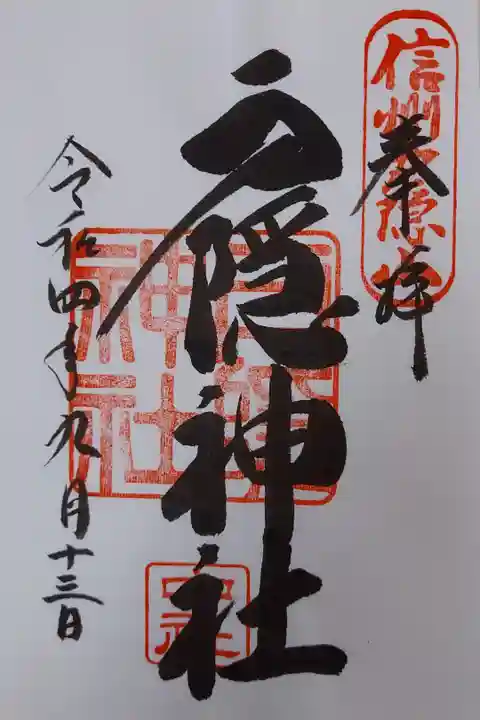 奉拝
信州戸隠山
戸隠神社
戸隠神社
中社
令和四年九月十三日